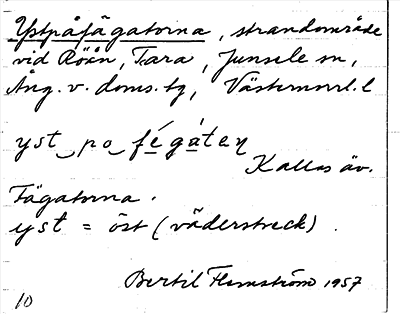 Ystpåfägatorna, strandområde
vid Röån, Tara, Junsele sn,
Ång. v. doms. tg, Västernorrl. l
yst po fégáten
Kallas äv.
Fägatorna.
yst = öst (väderstreck).
Bertil Flemström 1957
10